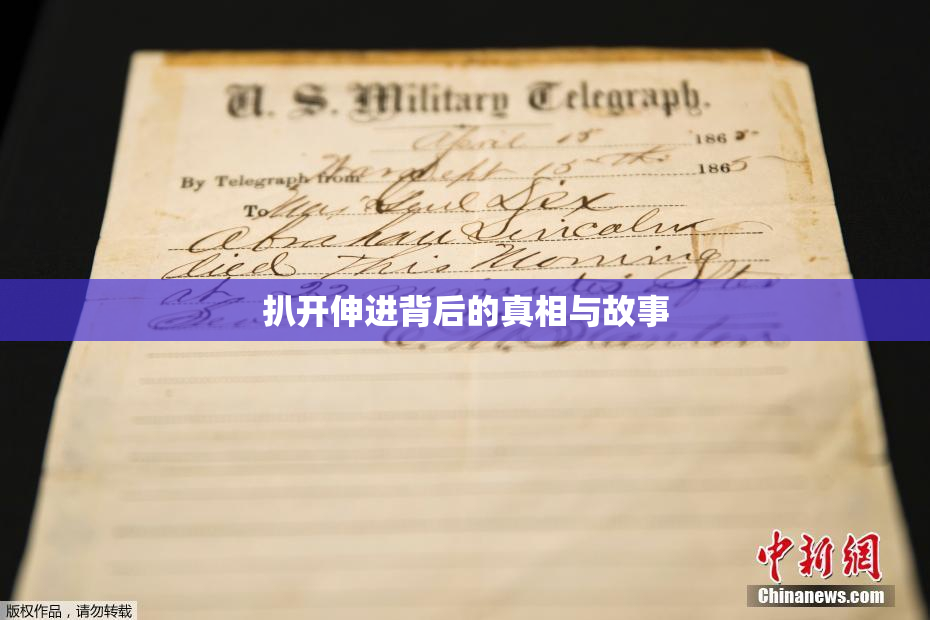 U. S. Military Telegraph.
April 15 1865
By Telegraph from War Dept 15th 1865
To Maj Genl Dix
Abraham Lincoln
died This Morning
at 22 minutes after
扒开伸进背后的真相与故事
Stanton
中新网
Chinanews.com
版权作品，请勿转载